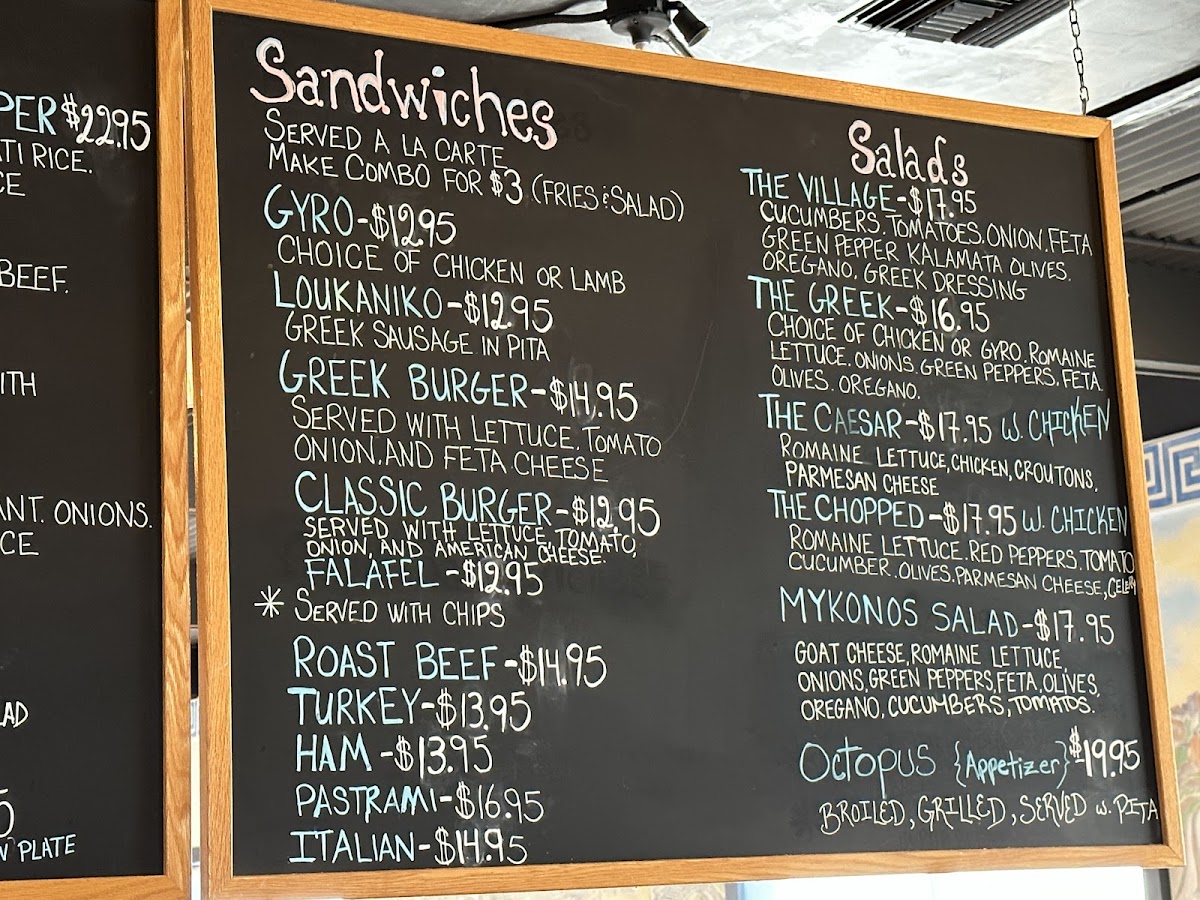 PER $22.95
TI RICE.
CE
BEEF.
ITH
ANT. ONIONS.
CE
AD
5
N PLATE
Sandwiches
SERVED A LA CARTE
MAKE COMBO FOR $3 (FRIES & SALAD)
GYRO-$12.95
CHOICE OF CHICKEN OR LAMB
LOUKANIKO-$12.95
GREEK SAUSAGE IN PITA
GREEK BURGER-$14.95
SERVED WITH LETTUCE, TOMATO
ONION, AND FETA CHEESE
CLASSIC BURGER-$12.95
SERVED WITH LETTUCE, TOMATO,
ONION, AND AMERICAN CHEESE.
FALAFEL-$12.95
* SERVED WITH CHIPS
ROAST BEEF-$14.95
TURKEY-$13.95
HAM-$13.95
PASTRAMI-$16.95
ITALIAN-$14.95
Salads
THE VILLAGE-$17.95
CUCUMBERS, TOMATOES, ONION, FETA
GREEN PEPPER KALAMATA OLIVES.
OREGANO, GREEK DRESSING
THE GREEK-$16.95
CHOICE OF CHICKEN OR GYRO, ROMAINE
LETTUCE, ONIONS, GREEN PEPPERS, FETA.
OLIVES, OREGANO.
THE CAESAR-$17.95 W. CHICKEN
ROMAINE LETTUCE, CHICKEN, CROUTONS,
PARMESAN CHEESE
THE CHOPPED-$17.95 W. CHICKEN
ROMAINE LETTUCE. RED PEPPERS. TOMATO
CUCUMBER. OLIVES. PARMESAN CHEESE, CELERY
MYKONOS SALAD-$17.95
GOAT CHEESE, ROMAINE LETTUCE,
ONIONS, GREEN PEPPERS, FETA, OLIVES,
OREGANO, CUCUMBERS, TOMATOS.
Octopus {Appetizer} $19.95
BROILED, GRILLED, SERVED W. PITA